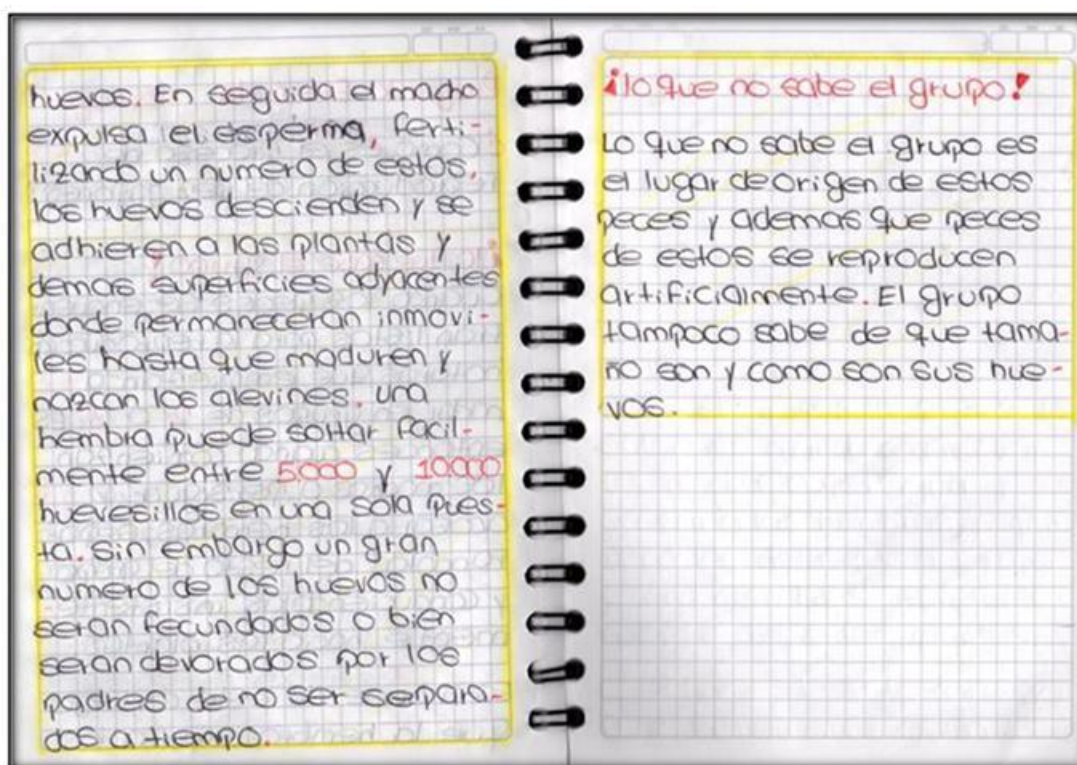 huevos. En seguida el macho
expulsa el esperma, ferti-
lizando un numero de estos.
los huevos descienden y se
adhieren a las plantas y
demas superficies adyacentes
donde permaneceran inmovi-
les hasta que maduren y
nazcan los alevines. una
hembra puede soltar facil-
mente entre 5.000 y 10.000
huevesillos en una sola pues-
ta. sin embargo un gran
numero de los huevos no
seran fecundados o bien
seran devorados por los
padres de no ser separa-
dos a tiempo.
¡lo que no sabe el grupo!
Lo que no sabe el grupo es
el lugar de origen de estos
peces y ademas que peces
de estos se reproducen
artificialmente. El grupo
tampoco sabe de que tama-
ño son y como son sus hue-
vos.